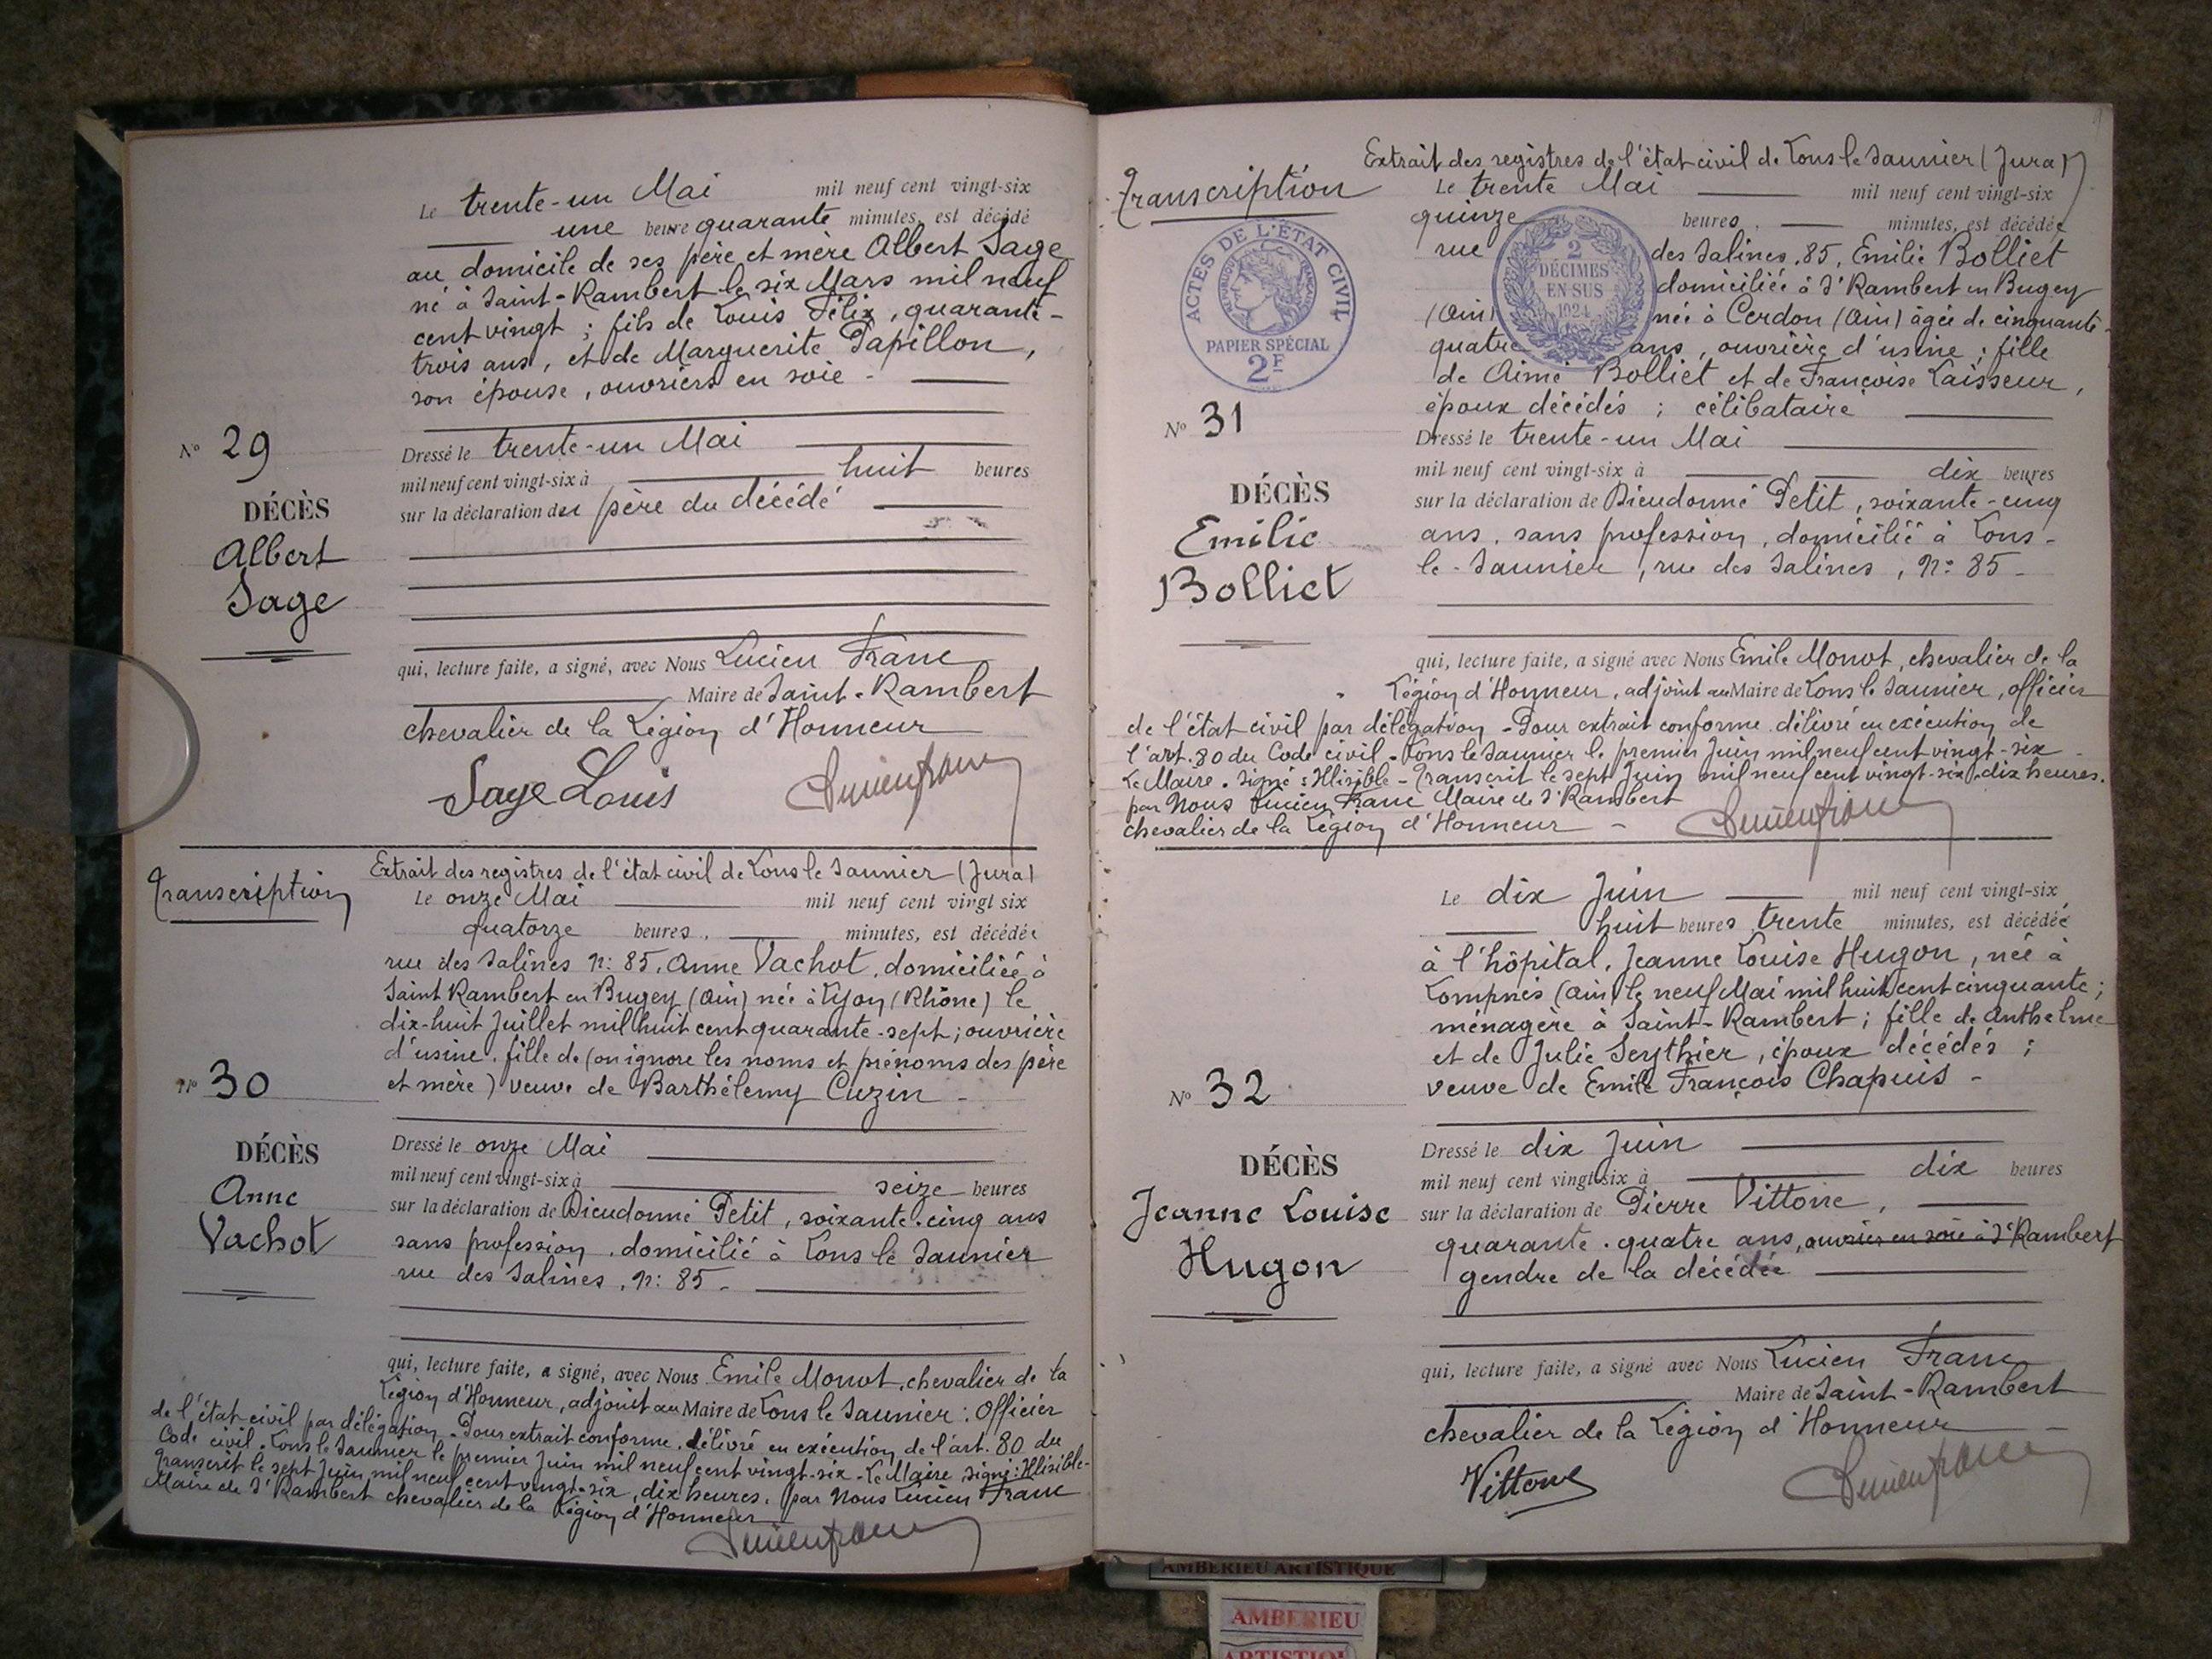 Le trente-un Mai mil neuf cent vingt-six
une heure quarante minutes, est décédé
au domicile de ses père et mère Albert Sage
né à Saint-Rambert le six Mars mil neuf
cent vingt ; fils de Louis Félix, quarante-
trois ans, et de Marguerite Papillon,
son épouse, ouvriers en soie -
N° 29
DÉCÈS
Albert
Sage
Dressé le trente-un Mai
mil neuf cent vingt-six à huit heures
sur la déclaration du père du décédé
qui, lecture faite, a signé, avec Nous Lucien Franc
Maire de Saint-Rambert
chevalier de la Légion d'Honneur
Sage Louis
Transcription
Extrait des registres de l'état civil de Lons le Saunier (Jura)
Le onze Mai mil neuf cent vingt six
quatorze heures, minutes, est décédée
rue des Salines n: 85, Anne Vachot, domiciliée à
Saint Rambert en Bugey (Ain) née à Lyon (Rhône) le
dix-huit Juillet mil huit cent quarante-sept ; ouvrière
d'usine, fille de (on ignore les noms et prénoms des père
et mère) veuve de Barthélemy Cuzin -
N° 30
DÉCÈS
Anne
Vachot
Dressé le onze Mai
mil neuf cent vingt-six à seize heures
sur la déclaration de Dieudonné Petit, soixante-cinq ans
sans profession, domicilié à Lons le Saunier
rue des Salines, n: 85 -
qui, lecture faite, a signé, avec Nous Emile Monot, chevalier de la
Légion d'Honneur, adjoint au Maire de Lons le Saunier : Officier
de l'état-civil par délégation - Pour extrait conforme, délivré en exécution de l'art. 80 du
Code civil - Lons le Saunier le premier Juin mil neuf cent vingt-six - Le Maire, signé : Illisible -
Transcrit le sept Juin mil neuf cent vingt-six, dix heures, par Nous Lucien Franc
Maire de St Rambert chevalier de la Légion d'Honneur
Extrait des registres de l'état civil de Lons le Saunier (Jura)
Transcription
Le trente Mai mil neuf cent vingt-six
quinze heures, minutes, est décédée
rue des Salines, 85, Emilie Bolliet
domiciliée à St Rambert en Bugey
(Ain) née à Cerdon (Ain) âgée de cinquante-
quatre ans, ouvrière d'usine ; fille
de Aimé Bolliet et de Françoise Laisseur,
époux décédés ; célibataire
ACTES DE L'ÉTAT CIVIL
RÉPUBLIQUE FRANÇAISE
PAPIER SPÉCIAL
2F
2
DÉCIMES
EN SUS
1924
N° 31
DÉCÈS
Emilie
Bolliet
Dressé le trente-un Mai
mil neuf cent vingt-six à dix heures
sur la déclaration de Dieudonné Petit, soixante-cinq
ans, sans profession, domicilié à Lons-
le-Saunier, rue des Salines, n: 85 -
qui, lecture faite, a signé avec Nous Emile Monot, chevalier de la
Légion d'Honneur, adjoint au Maire de Lons le Saunier, officier
de l'état civil par délégation - Pour extrait conforme délivré en exécution de
l'art. 80 du Code civil - Lons le Saunier le premier Juin mil neuf cent vingt-six -
Le Maire. Signé : Illisible - Transcrit le sept Juin mil neuf cent vingt-six, dix heures.
par Nous Lucien Franc Maire de St Rambert
chevalier de la Légion d'Honneur -
Le dix Juin mil neuf cent vingt-six,
huit heures trente minutes, est décédée
à l'hôpital, Jeanne Louise Hugon, née à
Lompnes (Ain) le neuf Mai mil huit cent cinquante ;
ménagère à Saint-Rambert ; fille de Anthelme
et de Julie Seythier, époux décédés ;
veuve de Emile François Chapuis -
N° 32
DÉCÈS
Jeanne Louise
Hugon
Dressé le dix Juin
mil neuf cent vingt-six à dix heures
sur la déclaration de Pierre Vittone,
quarante-quatre ans, ouvrier en soie à St Rambert
gendre de la décédée
qui, lecture faite, a signé avec Nous Lucien Franc
Maire de Saint-Rambert
chevalier de la Légion d'Honneur -
Vittone
AMBERIEU ARTISTIQUE
AMBERIEU
ARTISTIQUE